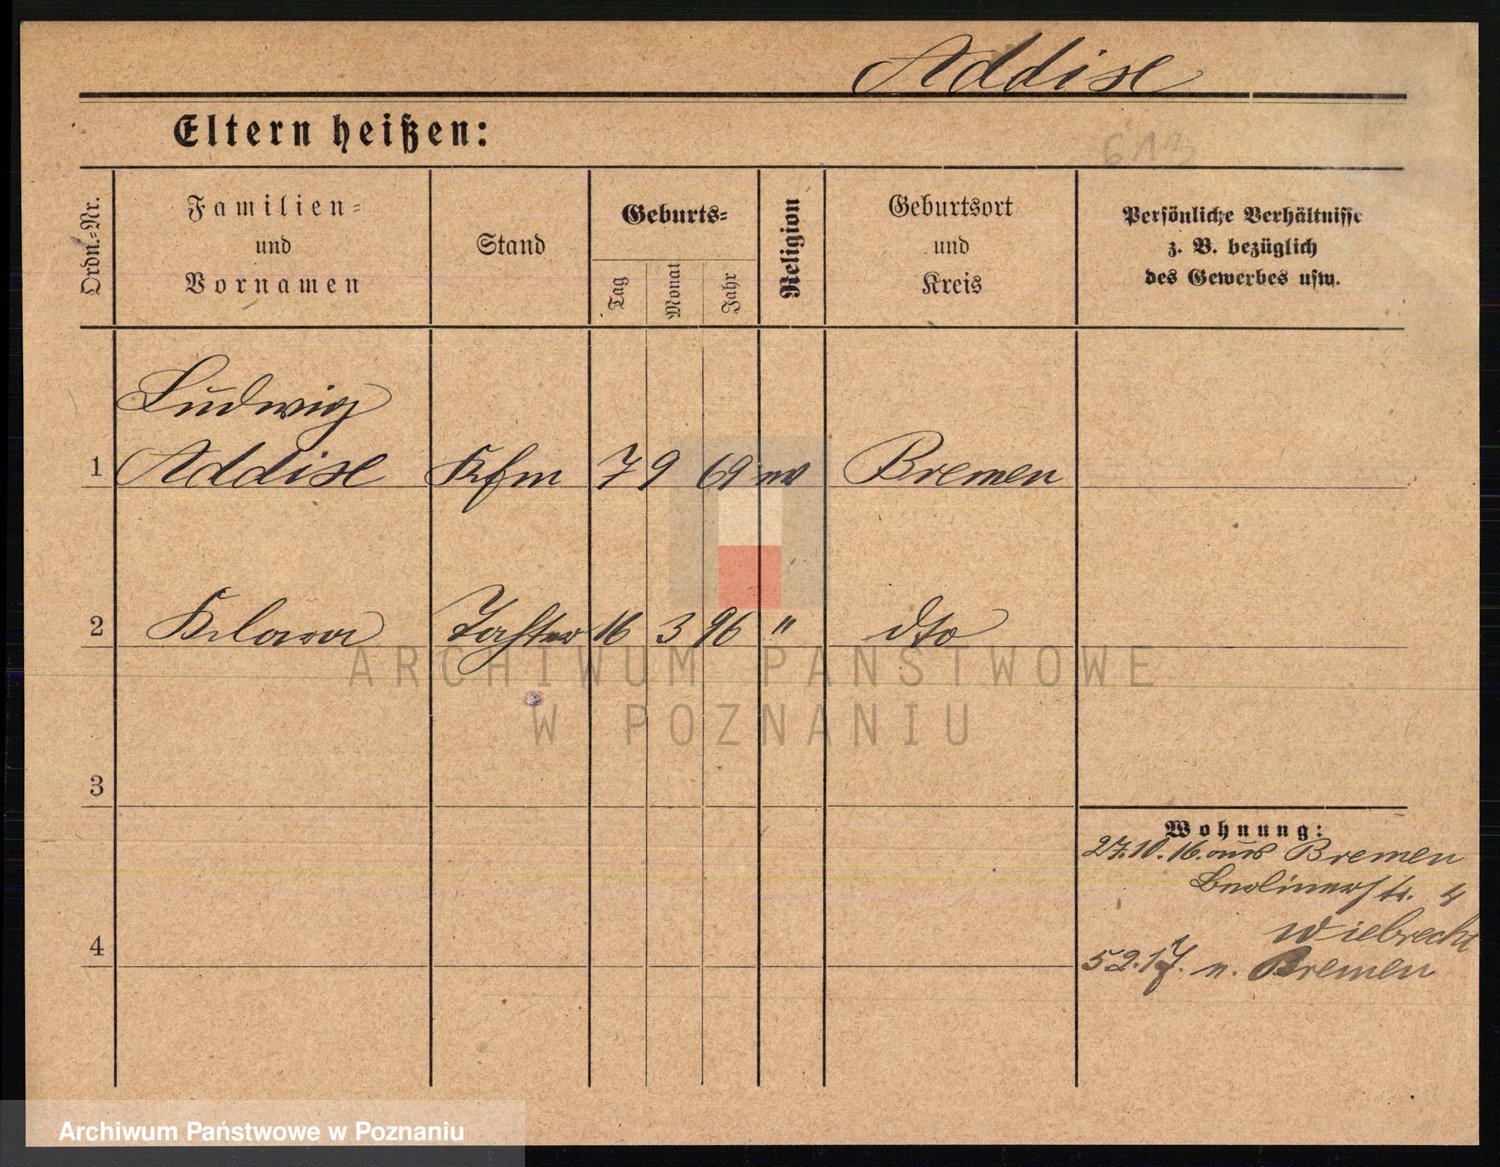 Addise
Eltern heißen:
613
Ordn.-Nr.
Familien-
und
Vornamen
Stand
Geburts-
Tag
Monat
Jahr
Religion
Geburtsort
und
Kreis
Persönliche Verhältnisse
z. B. bezüglich
des Gewerbes usw.
Ludwig
1 Addise Kfm 7 9 69 ev Bremen
2 Klara Tochter 16 3 96 " dto
ARCHIWUM PAŃSTWOWE
W POZNANIU
3
Wohnung:
27.10.16. aus Bremen
Berlinerstr. 4
Wiebrecht
4
5 2. 17. n. Bremen
Archiwum Państwowe w Poznaniu